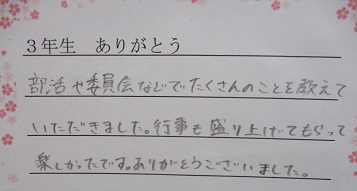 3年生　ありがとう
部活や委員会などでたくさんのことを教えて
いただきました。行事も盛り上げてもらって
楽しかったです。ありがとうございました。